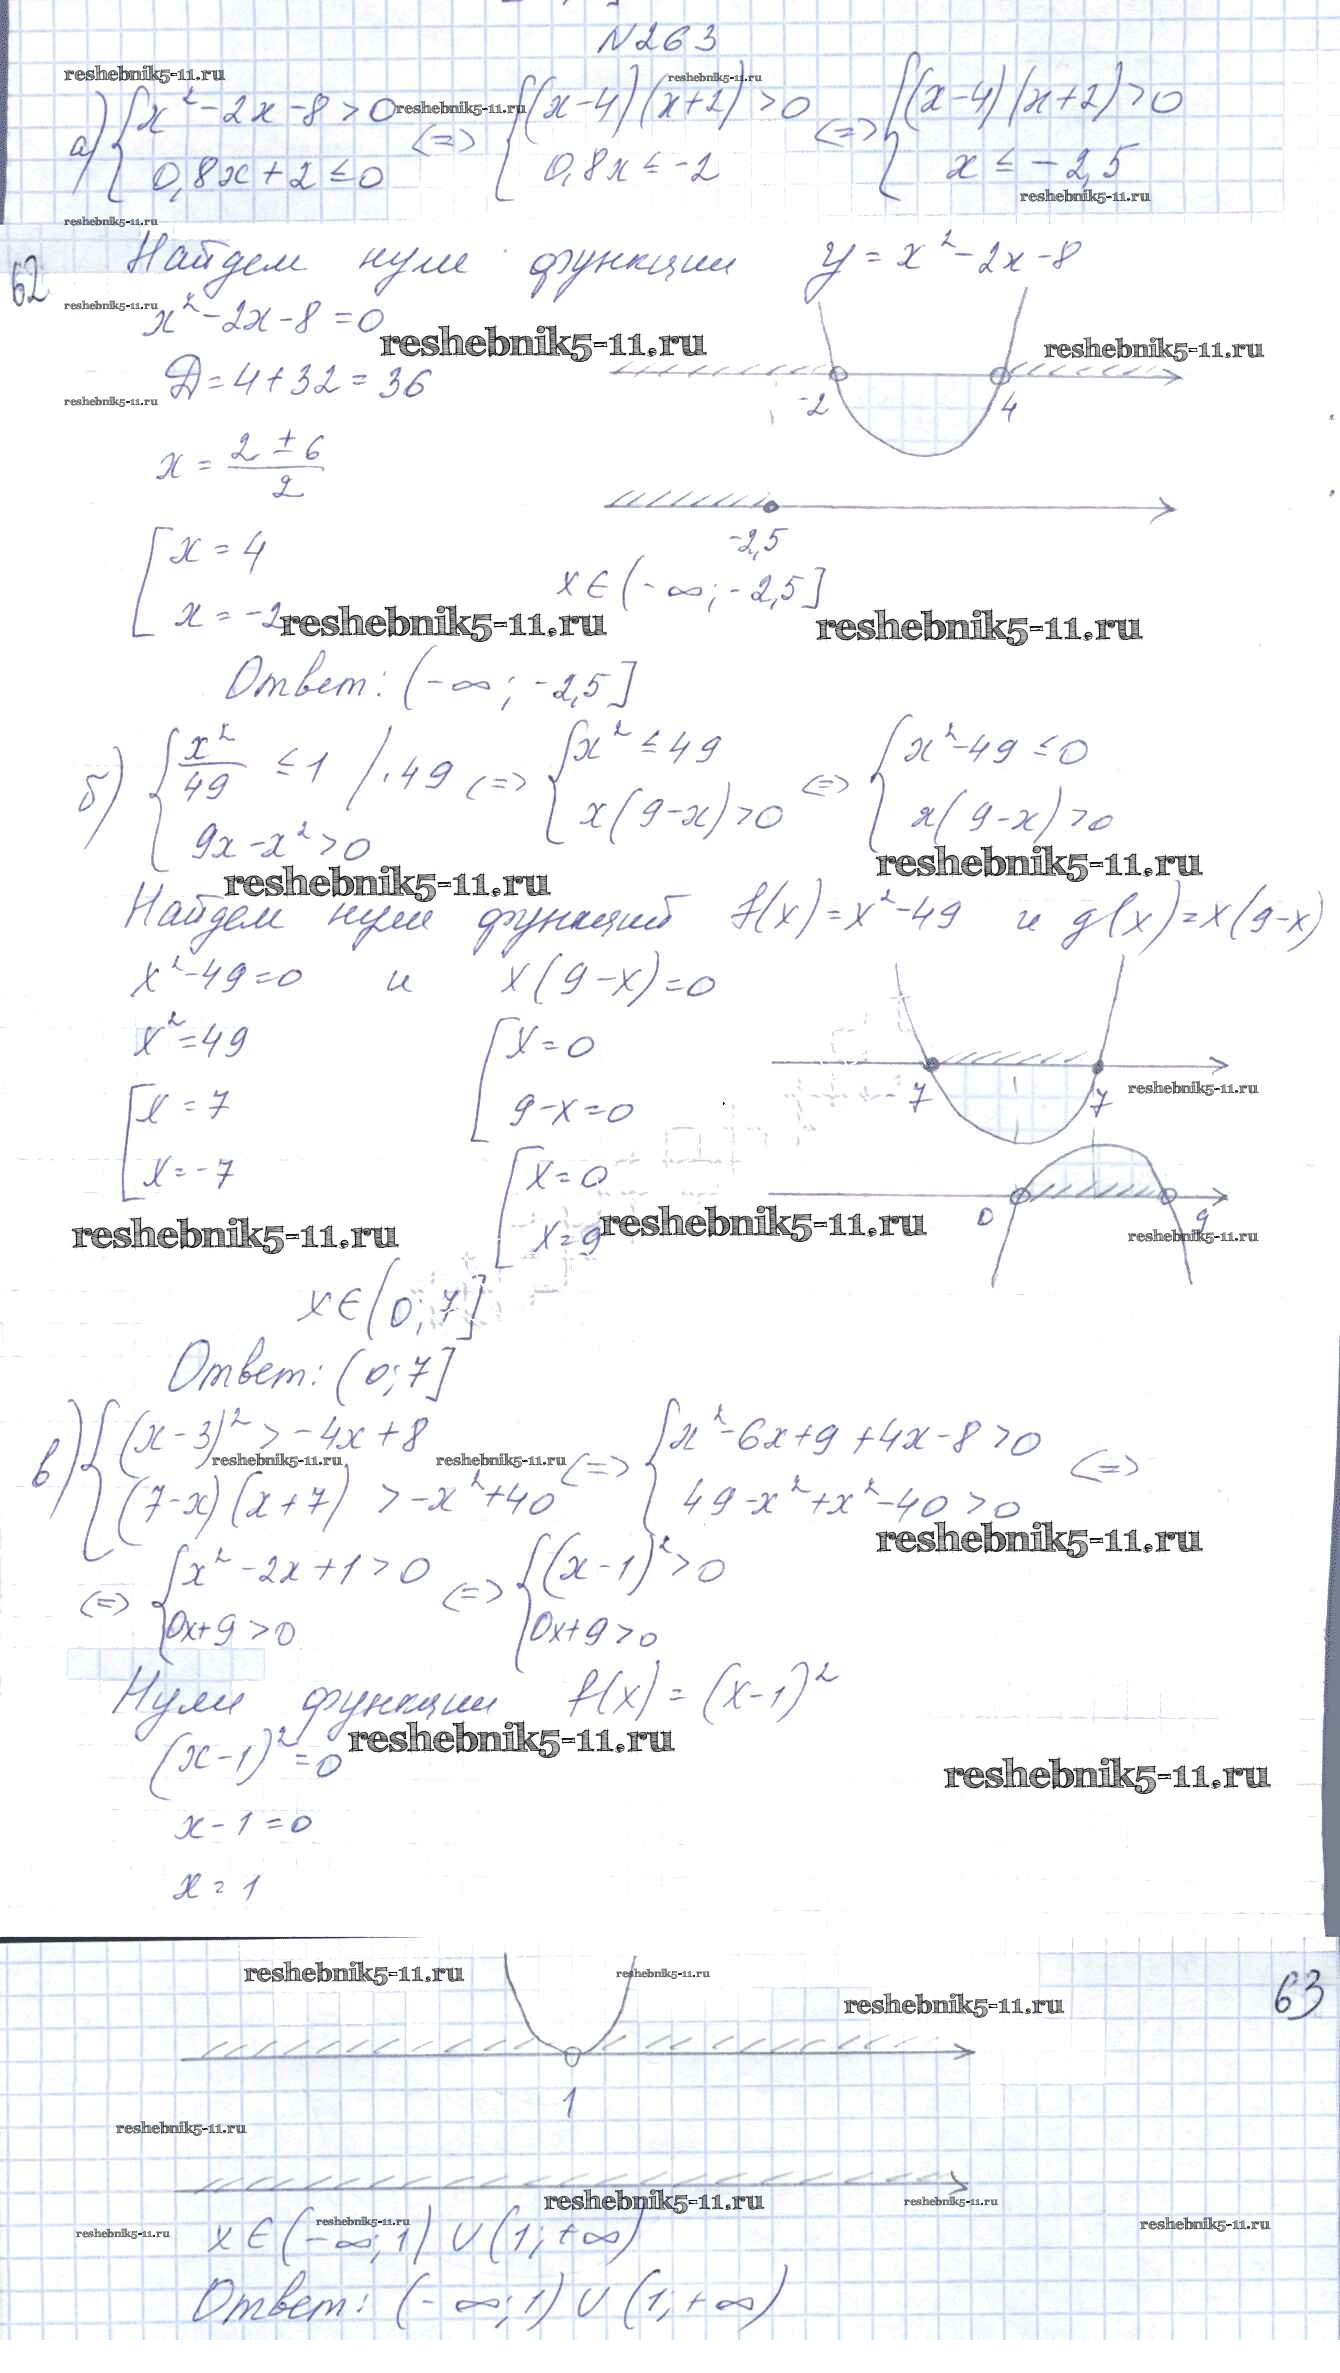 N263
reshebnik5-11.ru reshebnik5-11.ru
а) { x² - 2x - 8 > 0 reshebnik5-11.ru <=> { (x-4)(x+2) > 0 <=> { (x-4)(x+2) > 0
0,8x + 2 ≤ 0 0,8x ≤ -2 x ≤ -2,5
reshebnik5-11.ru
reshebnik5-11.ru
62 Найдем нули функции y = x² - 2x - 8
reshebnik5-11.ru
x² - 2x - 8 = 0
reshebnik5-11.ru reshebnik5-11.ru
D = 4 + 32 = 36
reshebnik5-11.ru
-2 4
x = (2 ± 6)/2
-2,5
[ x = 4
x ∈ (-∞; -2,5]
x = -2
reshebnik5-11.ru reshebnik5-11.ru
Ответ: (-∞; -2,5]
б) { x²/49 ≤ 1 /·49 <=> { x² ≤ 49 <=> { x² - 49 ≤ 0
9x - x² > 0 x(9-x) > 0 x(9-x) > 0
reshebnik5-11.ru reshebnik5-11.ru
Найдем нули функций f(x) = x² - 49 и g(x) = x(9-x)
x² - 49 = 0 и x(9-x) = 0
x² = 49 [ x = 0
-7 7 reshebnik5-11.ru
[ x = 7 9 - x = 0
x = -7 [ x = 0
0 9
reshebnik5-11.ru x = 9 reshebnik5-11.ru reshebnik5-11.ru
x ∈ (0; 7]
Ответ: (0; 7]
в) { (x-3)² > -4x + 8 <=> { x² - 6x + 9 + 4x - 8 > 0 <=>
reshebnik5-11.ru reshebnik5-11.ru
(7-x)(x+7) > -x² + 40 49 - x² + x² - 40 > 0
reshebnik5-11.ru
<=> { x² - 2x + 1 > 0 <=> { (x-1)² > 0
0x + 9 > 0 0x + 9 > 0
Нули функции f(x) = (x-1)²
reshebnik5-11.ru
(x-1)² = 0
reshebnik5-11.ru
x - 1 = 0
x = 1
reshebnik5-11.ru reshebnik5-11.ru
reshebnik5-11.ru 63
1
reshebnik5-11.ru
reshebnik5-11.ru reshebnik5-11.ru
reshebnik5-11.ru reshebnik5-11.ru reshebnik5-11.ru
x ∈ (-∞; 1) ∪ (1; +∞)
Ответ: (-∞; 1) ∪ (1; +∞)